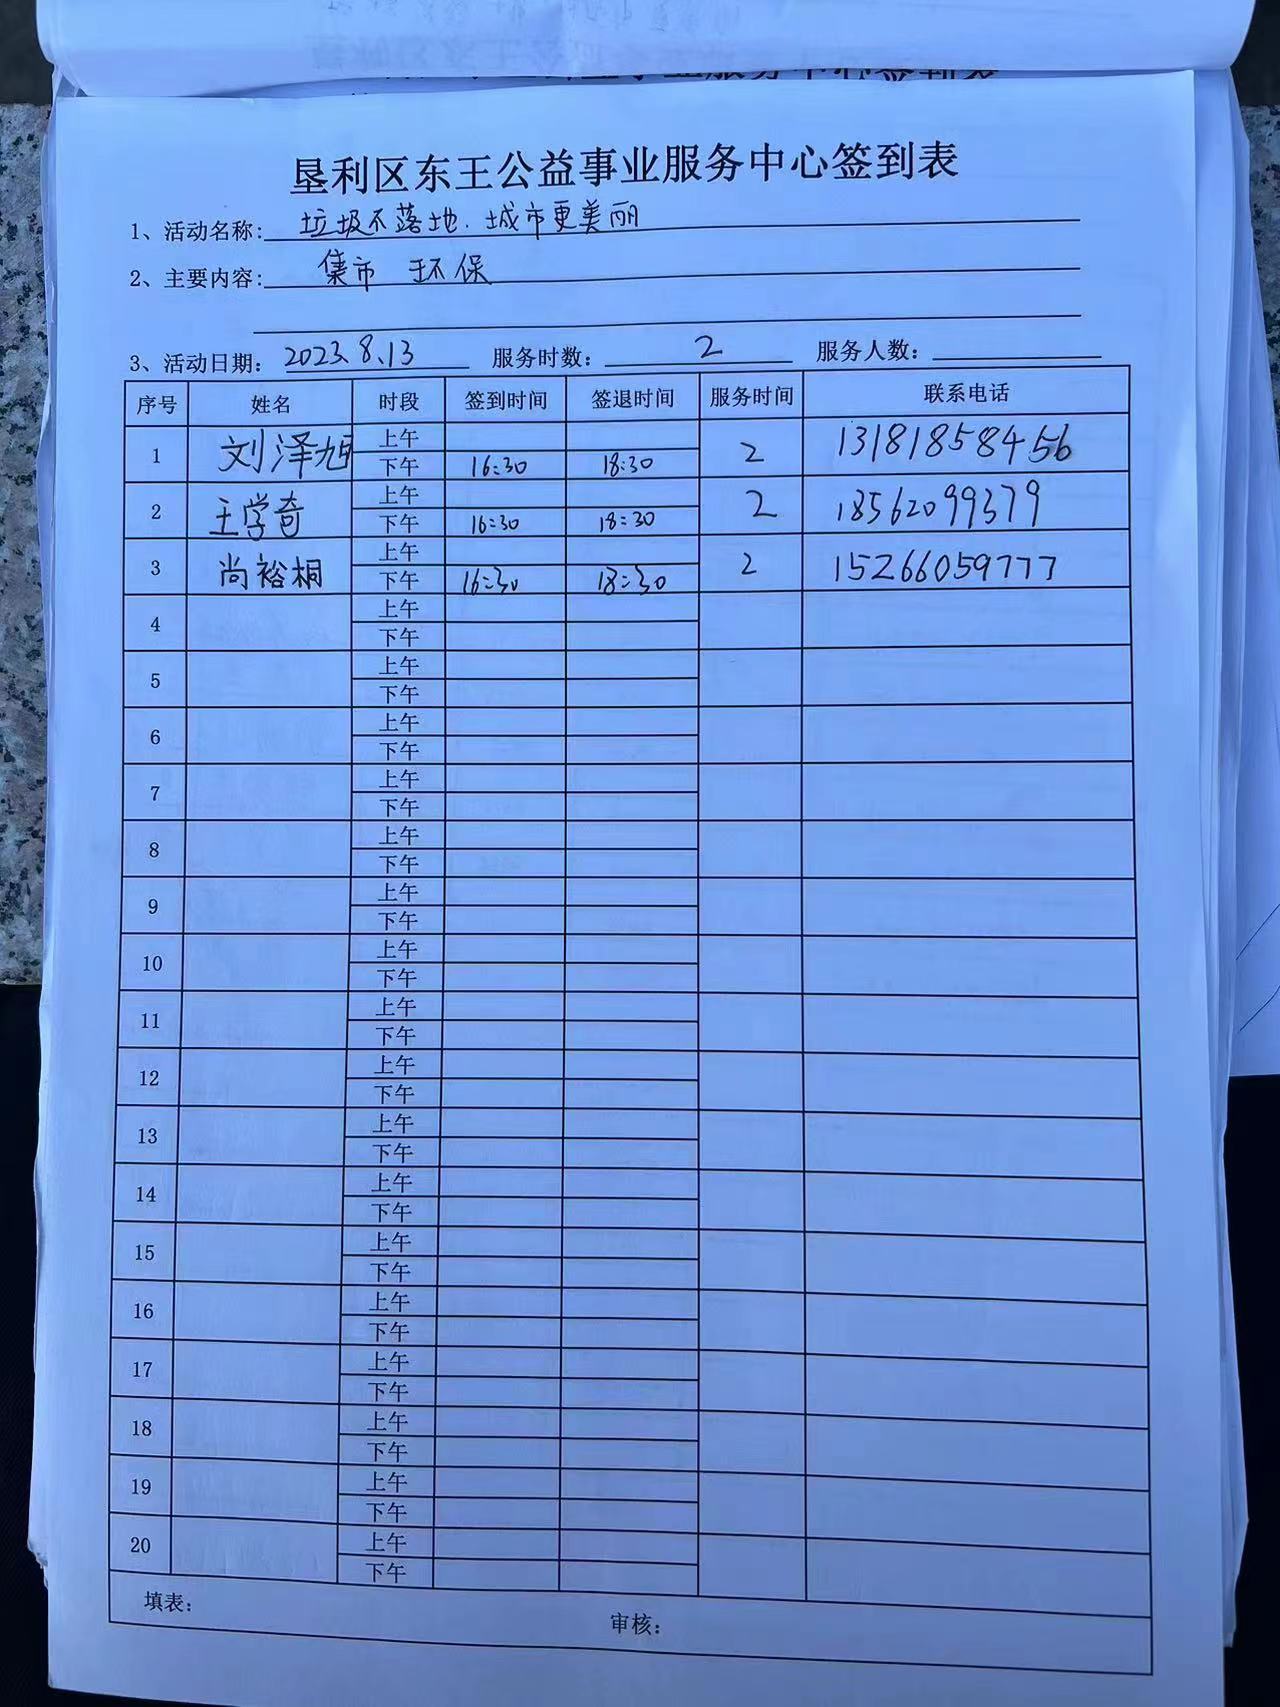 垦利区东王公益事业服务中心签到表
1、活动名称: 垃圾不落地.城市更美丽
2、主要内容: 集市 环保
3、活动日期: 2023.8.13 服务时数: 2 服务人数:
序号 姓名 时段 签到时间 签退时间 服务时间 联系电话
1 刘泽旭 上午 2 13181858456
下午 16:30 18:30
2 王学奇 上午 2 18562099379
下午 16:30 18:30
3 尚裕桐 上午 2 15266059777
下午 16:30 18:30
4 上午
下午
5 上午
下午
6 上午
下午
7 上午
下午
8 上午
下午
9 上午
下午
10 上午
下午
11 上午
下午
12 上午
下午
13 上午
下午
14 上午
下午
15 上午
下午
16 上午
下午
17 上午
下午
18 上午
下午
19 上午
下午
20 上午
下午
填表: 审核: